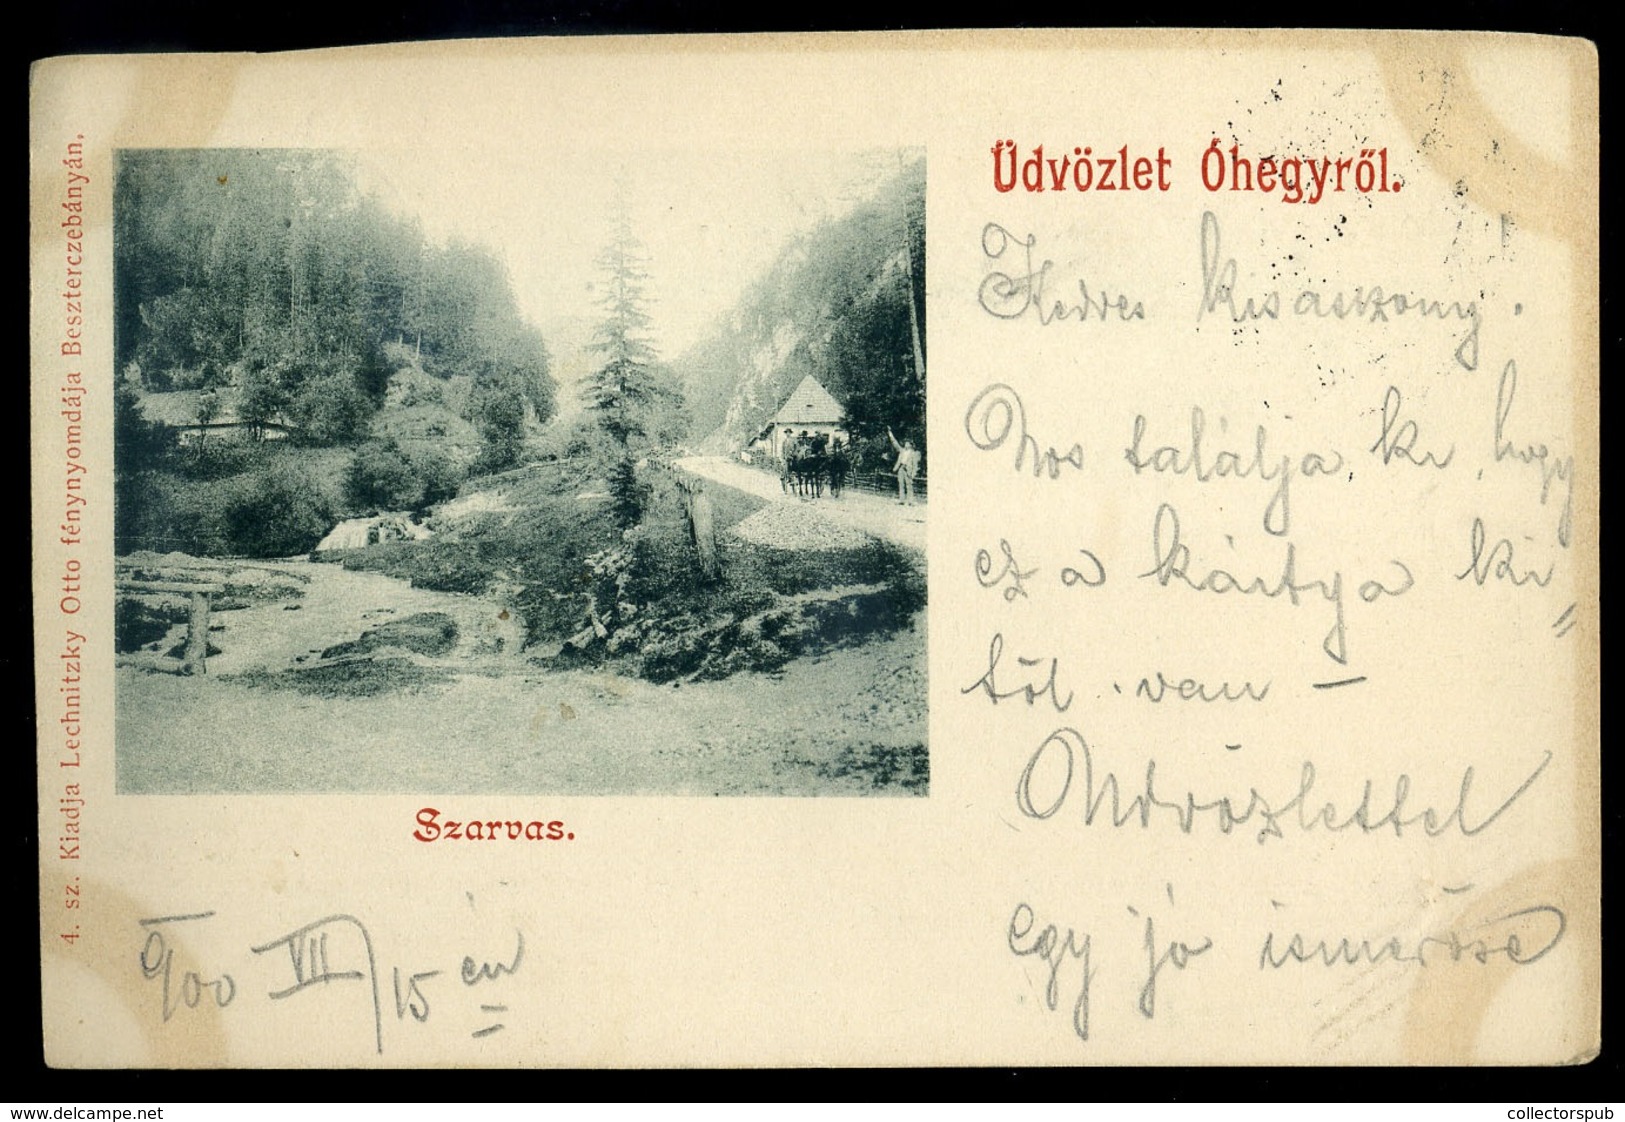 4. sz. Kiadja Lechnitzky Otto fénynyomdája Beszterczebányán,
Üdvözlet Óhegyről.
Kedves kisasszony.
Nos találja ki, hogy
ez a kártya ki=
től van –
Üdvözlettel
egy jó ismerőse
Szarvas.
900 VII/15 én
www.delcampe.net
collectorspub